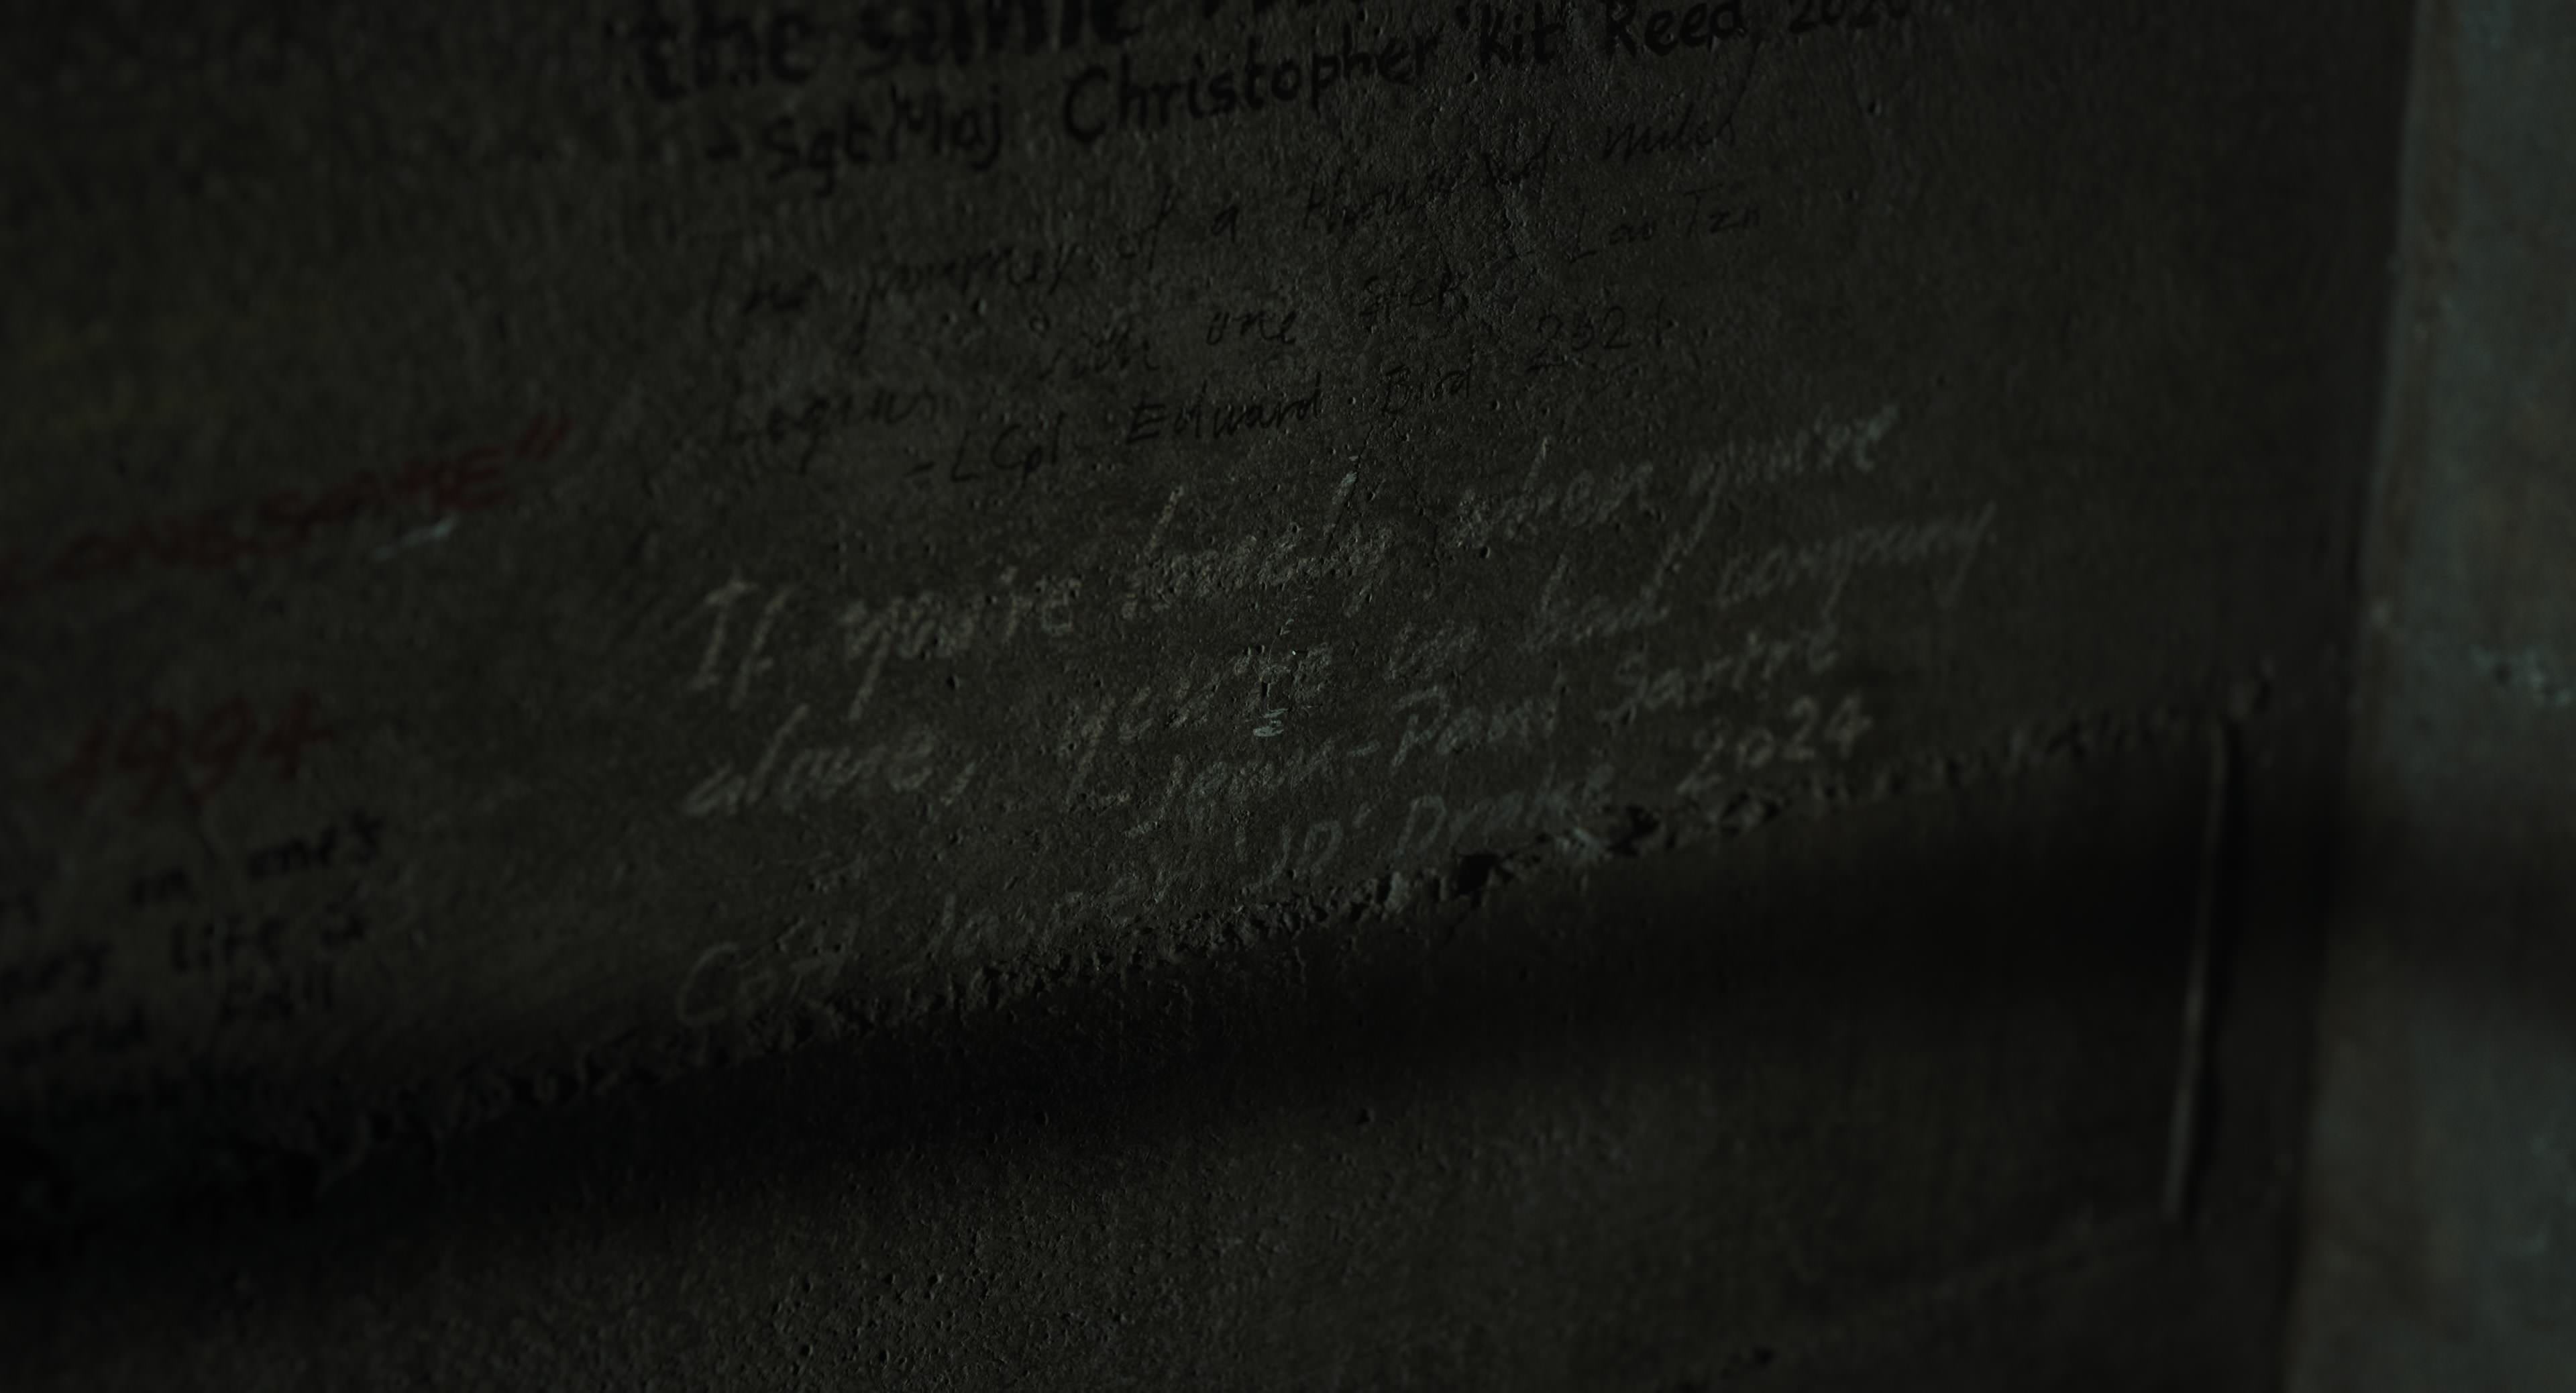 the same
- Sgt Maj Christopher 'Kit' Reed, 2020
The journey of a thousand miles
begins with one step - Lao Tzu
- LCpl Edward Bird 2021
If you're lonely when you're
alone, you're in bad company
- Jean-Paul Sartre
Cpt James 'JD' Drake 2024
LONESOME"
1994
in one's
life is